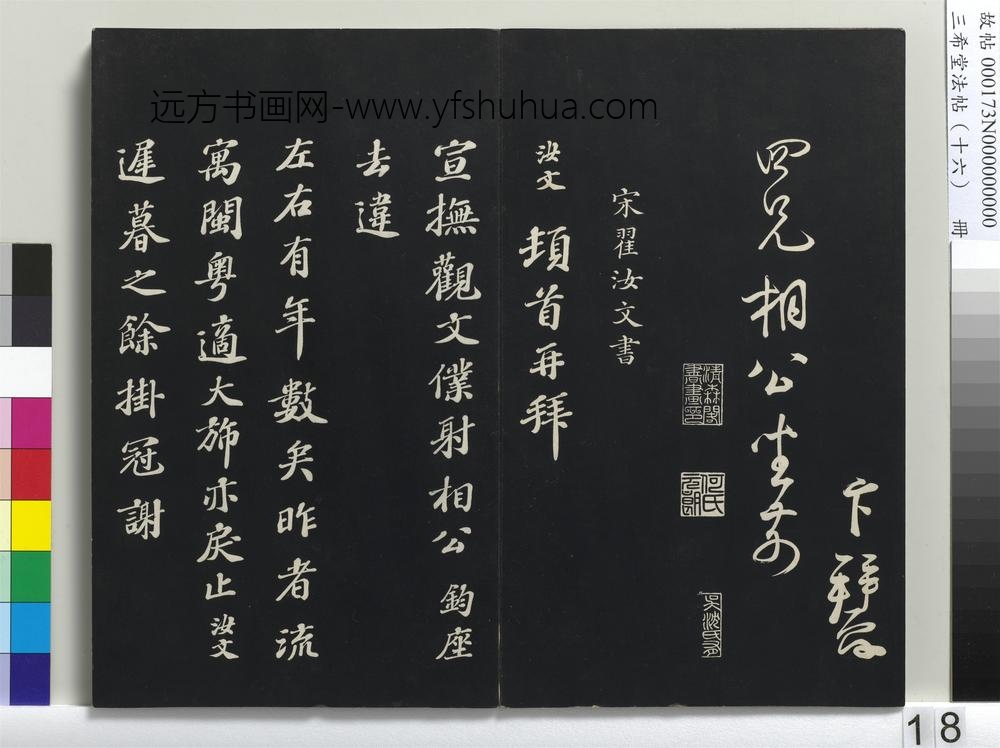 卞拜手
四兄相公坐前
清森閣書畫印
何氏元朗
宋翟汝文書
汝文頓首再拜
宣撫觀文僕射相公 鈞座
去違
左右有年數矣昨者流
寓閩粵適大斾亦戾止汝文
遲暮之餘掛冠謝
远方书画网-www.yfshuhua.com
故帖 000173N000000000
三希堂法帖(十六) 冊
18